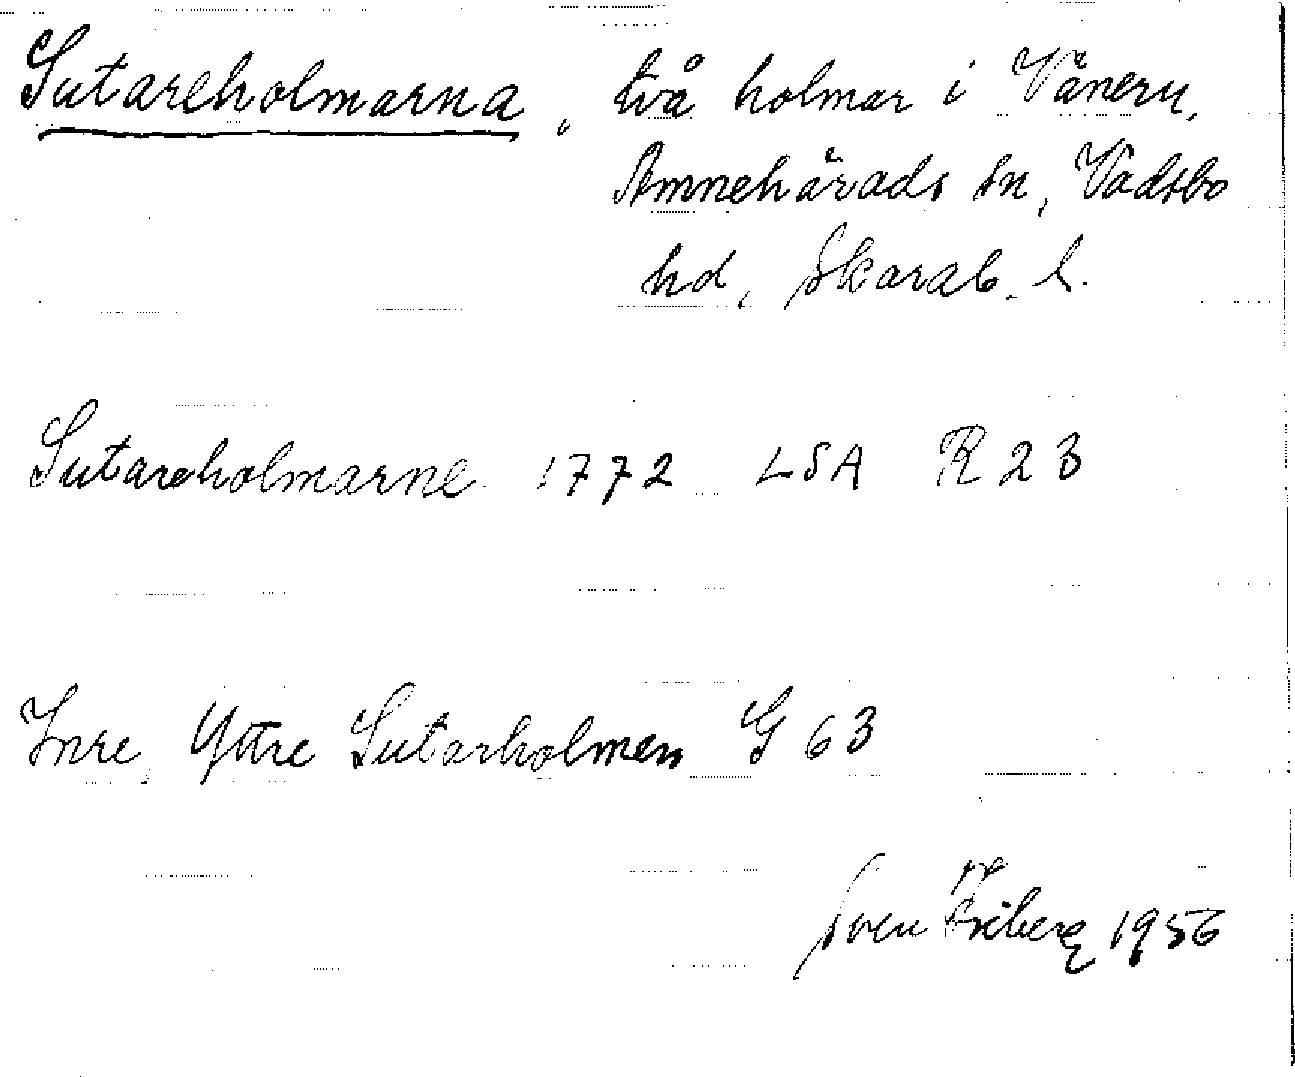 Sutareholmarna, två holmar i Vänern,
Amnehärads sn, Vadsbo
hd, Skarab. l.
Sutareholmarne 1772 LSA R 23
Inre, Yttre Sutarholmen G 63
Sven Friberg 1956